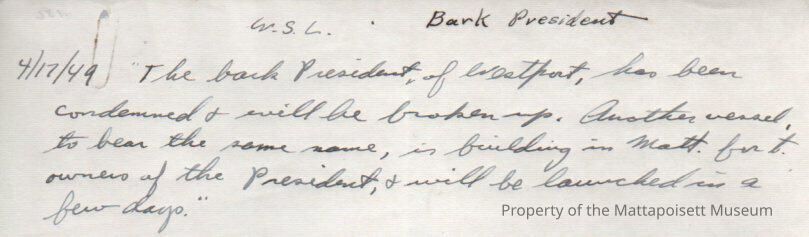 W.S.L. Bark President
4/17/49 "The bark President, of Westport, has been
condemned & will be broken up. Another vessel,
to bear the same name, is building in Matt. for t.
owners of the President, & will be launched in a
few days."
Property of the Mattapoisett Museum